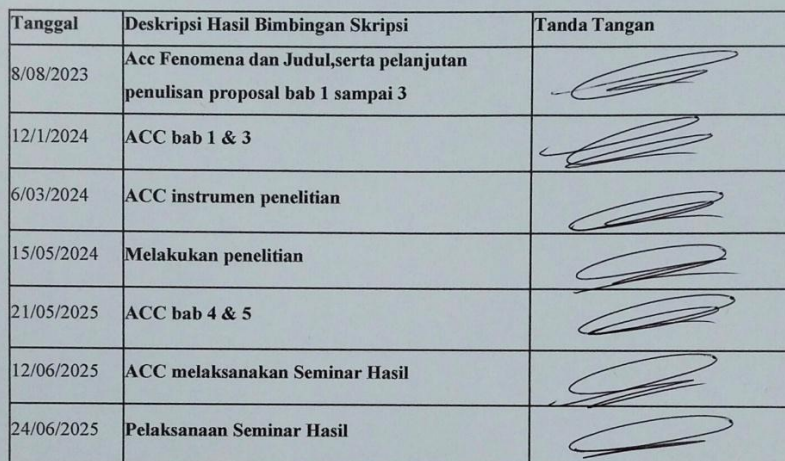 Tanggal Deskripsi Hasil Bimbingan Skripsi Tanda Tangan
8/08/2023 Acc Fenomena dan Judul,serta pelanjutan
penulisan proposal bab 1 sampai 3
12/1/2024 ACC bab 1 & 3
6/03/2024 ACC instrumen penelitian
15/05/2024 Melakukan penelitian
21/05/2025 ACC bab 4 & 5
12/06/2025 ACC melaksanakan Seminar Hasil
24/06/2025 Pelaksanaan Seminar Hasil